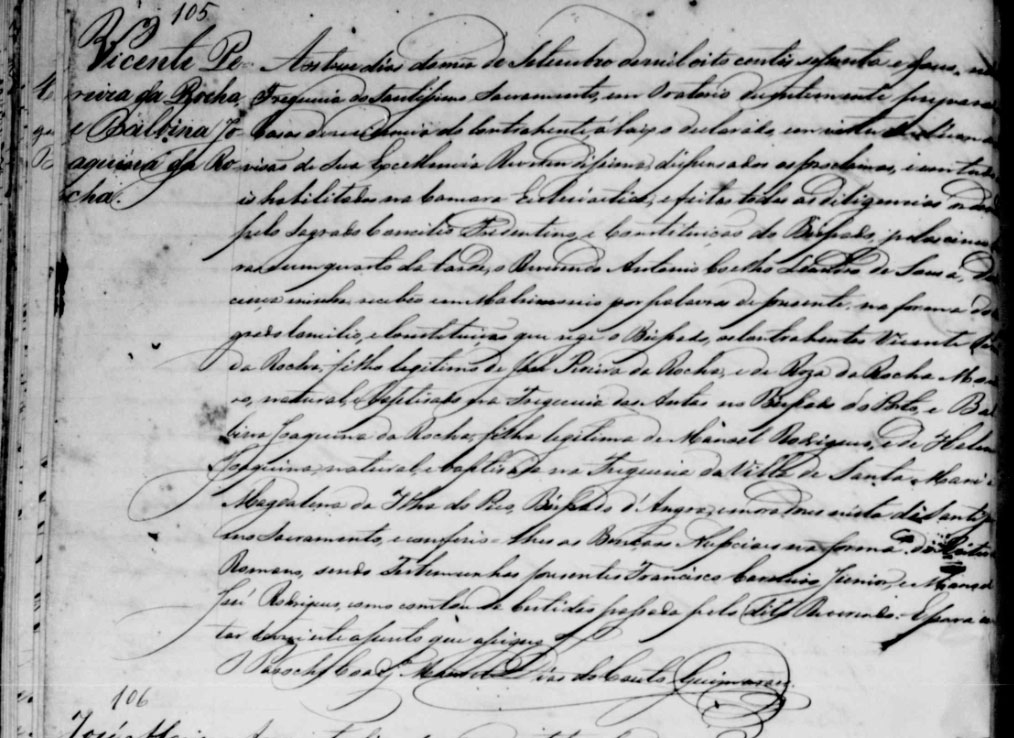 105
Vicente Pe-
reira da Rocha
e Balbina Jo-
aquina da Ro
cha.
Aos dias do mez de Setembro de mil oito centos setenta e
Freguezia do Santissimo Sacramento, em Oratorio decentemente
Casas de residencia do Contrahente abaixo declarado, em
de Sua Excellencia Reverendissima, dispensados os proclamas, e
habilitados na Camara Ecclesiastica, e feitas todas as diligencias
pelo Sagrado Concilio Tridentino, e Constituição do Bispado, pelas cinco
e um quarto da tarde, o Reverendo Antonio Coelho de
licença minha recebeo em Matrimonio por palavras de presente, na forma do
grado Concilio, e Constituição que rege o Bispado, os Contrahentes Vicente
da Rocha, filho legitimo de José Pereira da Rocha, e de Roza da Rocha
natural, e baptizado na Freguezia das Antas no Bispado do Porto, e Bal
bina Joaquina da Rocha, filha legitima de Manoel Rodrigues, e de Helena
Joaquina, natural, e baptizada na Freguezia da Villa de Santa Maria
Magdalena da Ilha do Pico, Bispado d'Angra, e moradores nesta do Santis
simo Sacramento, e conferio-lhes as Bençãos Nupciaes na forma do Ritual
Romano, sendo Testemunhas presentes Francisco Junior, e Manoel
José Rodrigues, como consta da Certidão passada pelo dito Reverendo. E para
tar este assento que assignei
O Parocho Manoel Dias do Couto Guimarães.
106
José